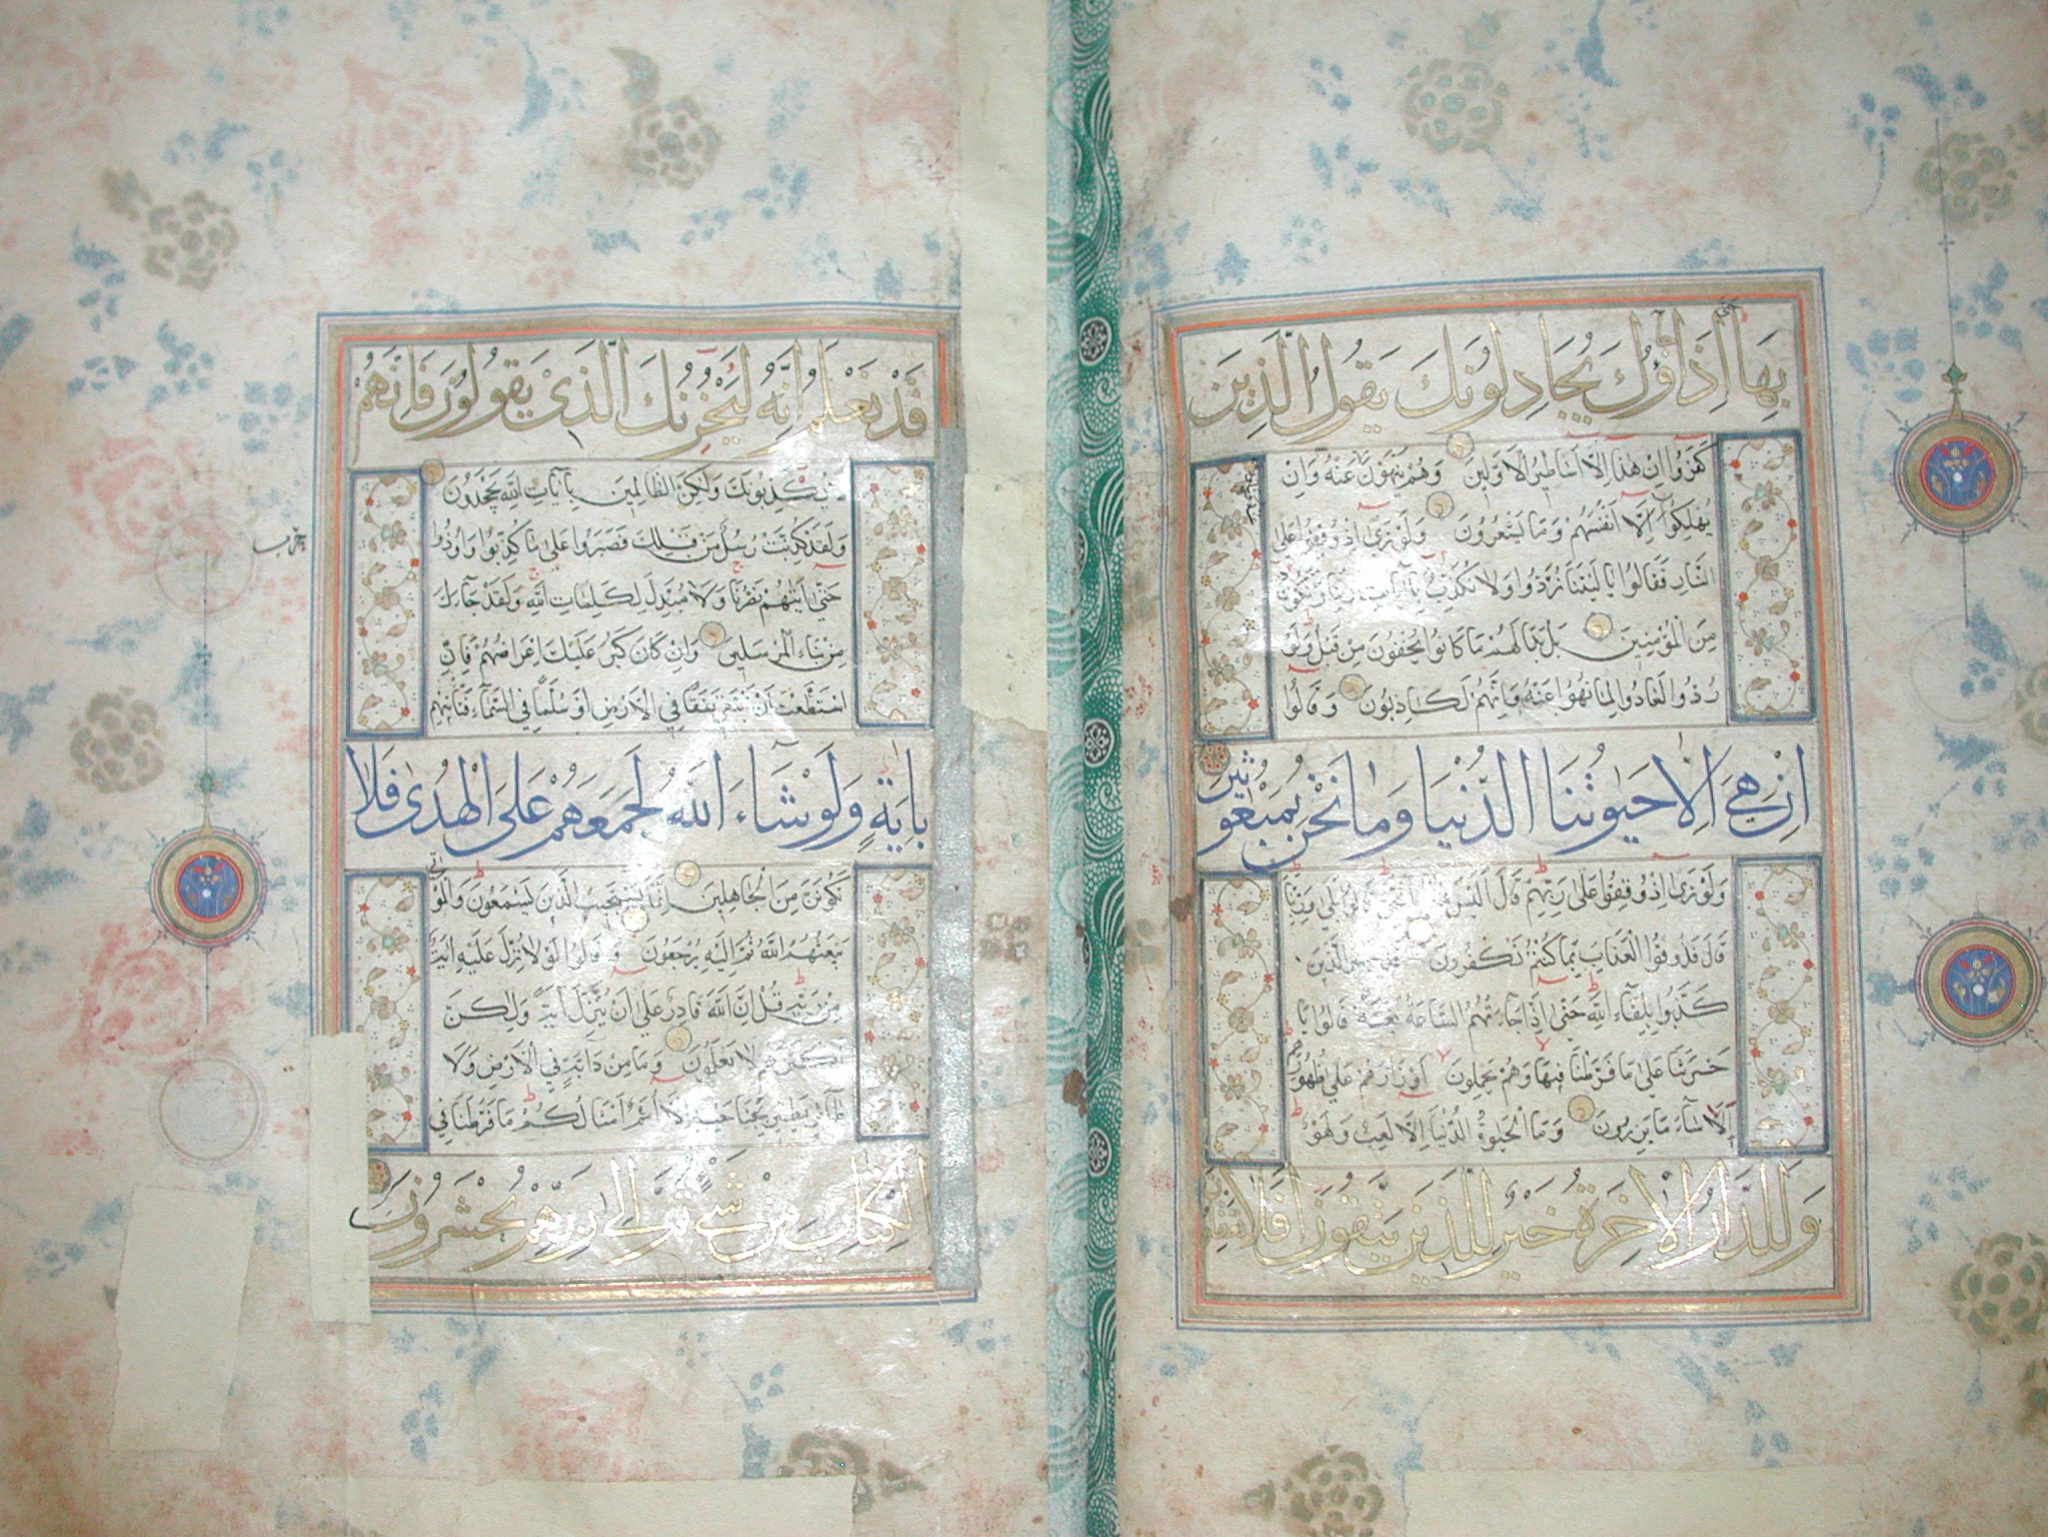 بِهَا اِذَا جَاؤُكَ يُجَادِلُونَكَ يَقُولُ الَّذِينَ
كَفَرُوا اِنْ هٰذَا اِلَّا اَسَاطِيرُ الْاَوَّلِينَ وَهُمْ يَنْهَوْنَ عَنْهُ وَاِنْ
يُهْلِكُونَ اِلَّا اَنْفُسَهُمْ وَمَا يَشْعُرُونَ وَلَوْ تَرٰى اِذْ وُقِفُوا عَلَى
النَّارِ فَقَالُوا يَا لَيْتَنَا نُرَدُّ وَلَا نُكَذِّبُ بِاٰيَاتِ رَبِّنَا وَنَكُونَ
مِنَ الْمُؤْمِنِينَ بَلْ بَدَا لَهُمْ مَا كَانُوا يُخْفُونَ مِنْ قَبْلُ وَلَوْ
رُدُّوا لَعَادُوا لِمَا نُهُوا عَنْهُ وَاِنَّهُمْ لَكَاذِبُونَ وَقَالُوا
اِنْ هِيَ اِلَّا حَيٰوتُنَا الدُّنْيَا وَمَا نَحْنُ بِمَبْعُوثِينَ
وَلَوْ تَرٰى اِذْ وُقِفُوا عَلٰى رَبِّهِمْ قَالَ اَلَيْسَ قَالُوا بَلٰى وَرَبِّنَا
قَالَ فَذُوقُوا الْعَذَابَ بِمَا كُنْتُمْ تَكْفُرُونَ الَّذِينَ
كَذَّبُوا بِلِقَاءِ اللّٰهِ حَتّٰى اِذَا جَاءَتْهُمُ السَّاعَةُ بَغْتَةً قَالُوا يَا
حَسْرَتَنَا عَلٰى مَا فَرَّطْنَا فِيهَا وَهُمْ يَحْمِلُونَ اَوْزَارَهُمْ عَلٰى ظُهُورِهِمْ
اَلَا سَاءَ مَا يَزِرُونَ وَمَا الْحَيٰوةُ الدُّنْيَا اِلَّا لَعِبٌ وَلَهْوٌ
وَلَلدَّارُ الْاٰخِرَةُ خَيْرٌ لِلَّذِينَ يَتَّقُونَ اَفَلَا تَعْقِلُونَ
قَدْ نَعْلَمُ اِنَّهُ لَيَحْزُنُكَ الَّذِي يَقُولُونَ فَاِنَّهُمْ
لَا يُكَذِّبُونَكَ وَلٰكِنَّ الظَّالِمِينَ بِاٰيَاتِ اللّٰهِ يَجْحَدُونَ
وَلَقَدْ كُذِّبَتْ رُسُلٌ مِنْ قَبْلِكَ فَصَبَرُوا عَلٰى مَا كُذِّبُوا وَاُوذُوا
حَتّٰى اَتٰيهُمْ نَصْرُنَا وَلَا مُبَدِّلَ لِكَلِمَاتِ اللّٰهِ وَلَقَدْ جَاءَكَ
مِنْ نَبَاِ الْمُرْسَلِينَ وَاِنْ كَانَ كَبُرَ عَلَيْكَ اِعْرَاضُهُمْ فَاِنِ
اسْتَطَعْتَ اَنْ تَبْتَغِيَ نَفَقًا فِي الْاَرْضِ اَوْ سُلَّمًا فِي السَّمَاءِ فَتَاْتِيَهُمْ
بِاٰيَةٍ وَلَوْ شَاءَ اللّٰهُ لَجَمَعَهُمْ عَلَى الْهُدٰى فَلَا
تَكُونَنَّ مِنَ الْجَاهِلِينَ اِنَّمَا يَسْتَجِيبُ الَّذِينَ يَسْمَعُونَ وَالْمَوْتٰى
يَبْعَثُهُمُ اللّٰهُ ثُمَّ اِلَيْهِ يُرْجَعُونَ وَقَالُوا لَوْلَا نُزِّلَ عَلَيْهِ اٰيَةٌ
مِنْ رَبِّهِ قُلْ اِنَّ اللّٰهَ قَادِرٌ عَلٰى اَنْ يُنَزِّلَ اٰيَةً وَلٰكِنَّ
اَكْثَرَهُمْ لَا يَعْلَمُونَ وَمَا مِنْ دَابَّةٍ فِي الْاَرْضِ وَلَا
طَائِرٍ يَطِيرُ بِجَنَاحَيْهِ اِلَّا اُمَمٌ اَمْثَالُكُمْ مَا فَرَّطْنَا فِي
الْكِتَابِ مِنْ شَيْءٍ ثُمَّ اِلٰى رَبِّهِمْ يُحْشَرُونَ